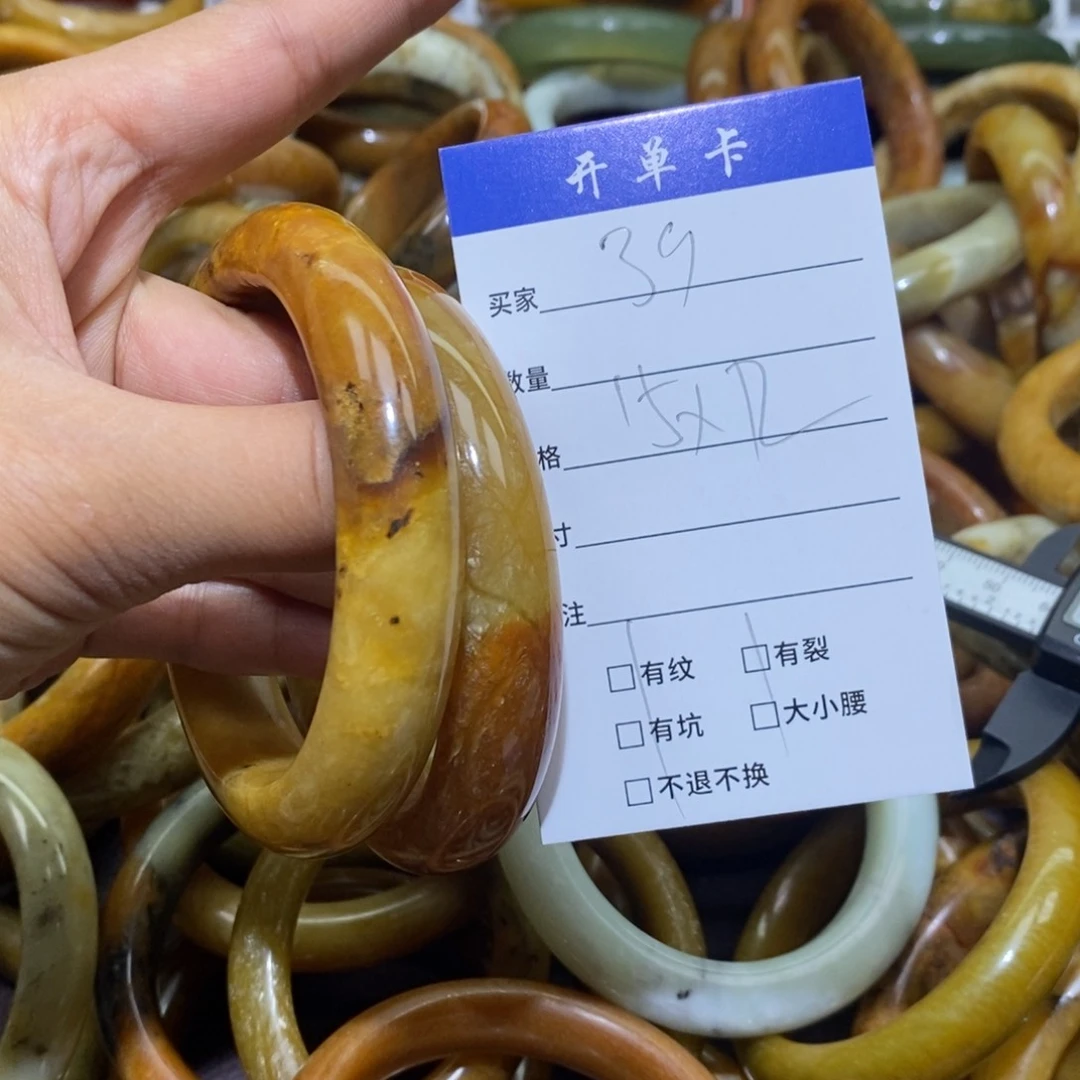 开单卡
买家 39
数量
格 15x12
寸
注
□有纹 □有裂
□有坑 □大小腰
□不退不换